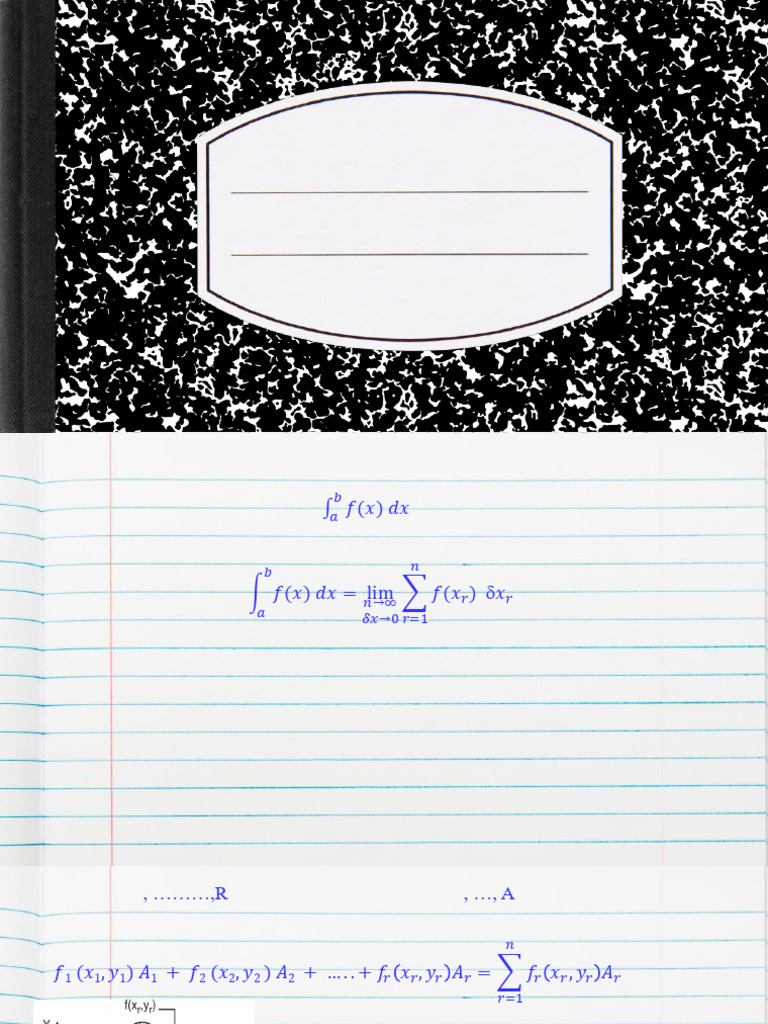 ∫ₐᵇ f(x) dx
∫ₐᵇ f(x) dx = lim n→∞ δx→0 ∑ r=1 n f(xᵣ) δxᵣ
, ………,R , …, A
f₁ (x₁, y₁) A₁ + f₂ (x₂, y₂) A₂ + ….. + fᵣ(xᵣ, yᵣ)Aᵣ = ∑ r=1 n fᵣ(xᵣ, yᵣ)Aᵣ
f(xᵣ,yᵣ)